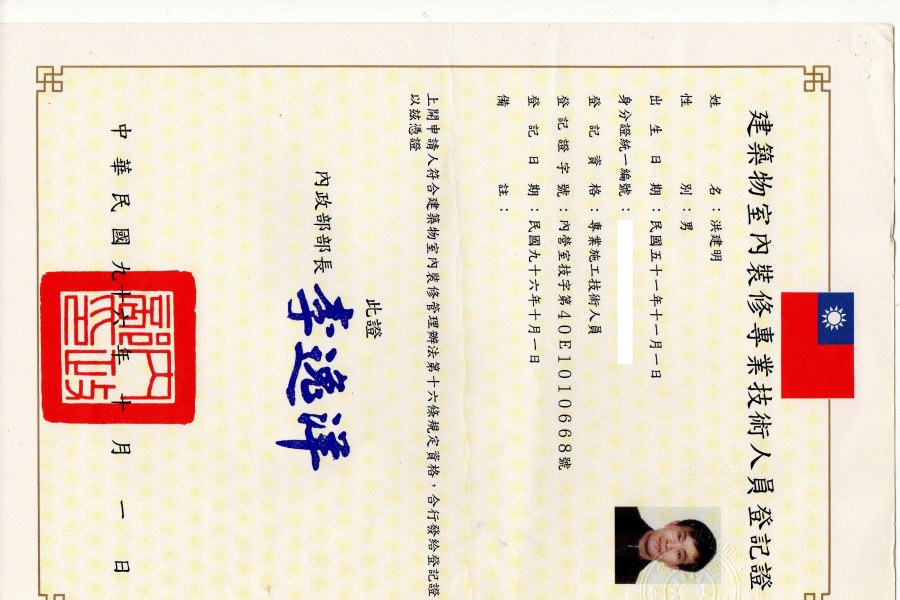 建築物室內裝修專業技術人員登記證
姓名：洪建明
性別：男
出生日期：民國五十一年十一月一日
身分證統一編號：
登記資格：專業施工技術人員
登記證字號：內營室技字第40E1010668號
登記日期：民國九十六年十月一日
備註：
上開申請人符合建築物室內裝修管理辦法第十六條規定資格，合行發給登記證
以茲憑證
此證
內政部部長 李逸洋
中華民國九十六年十月一日
內政部印